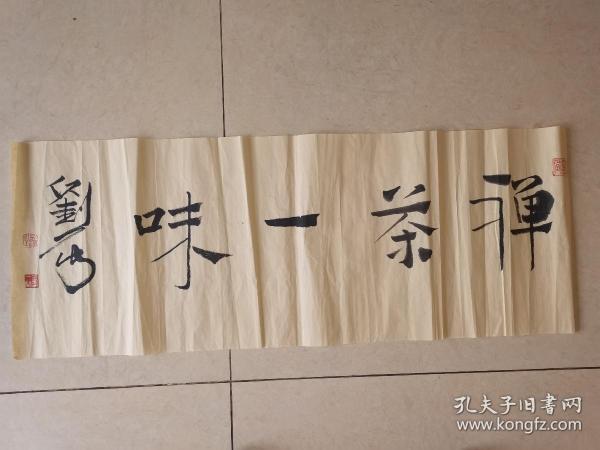 禅茶一味
劉
孔夫子旧書网
www.kongfz.com